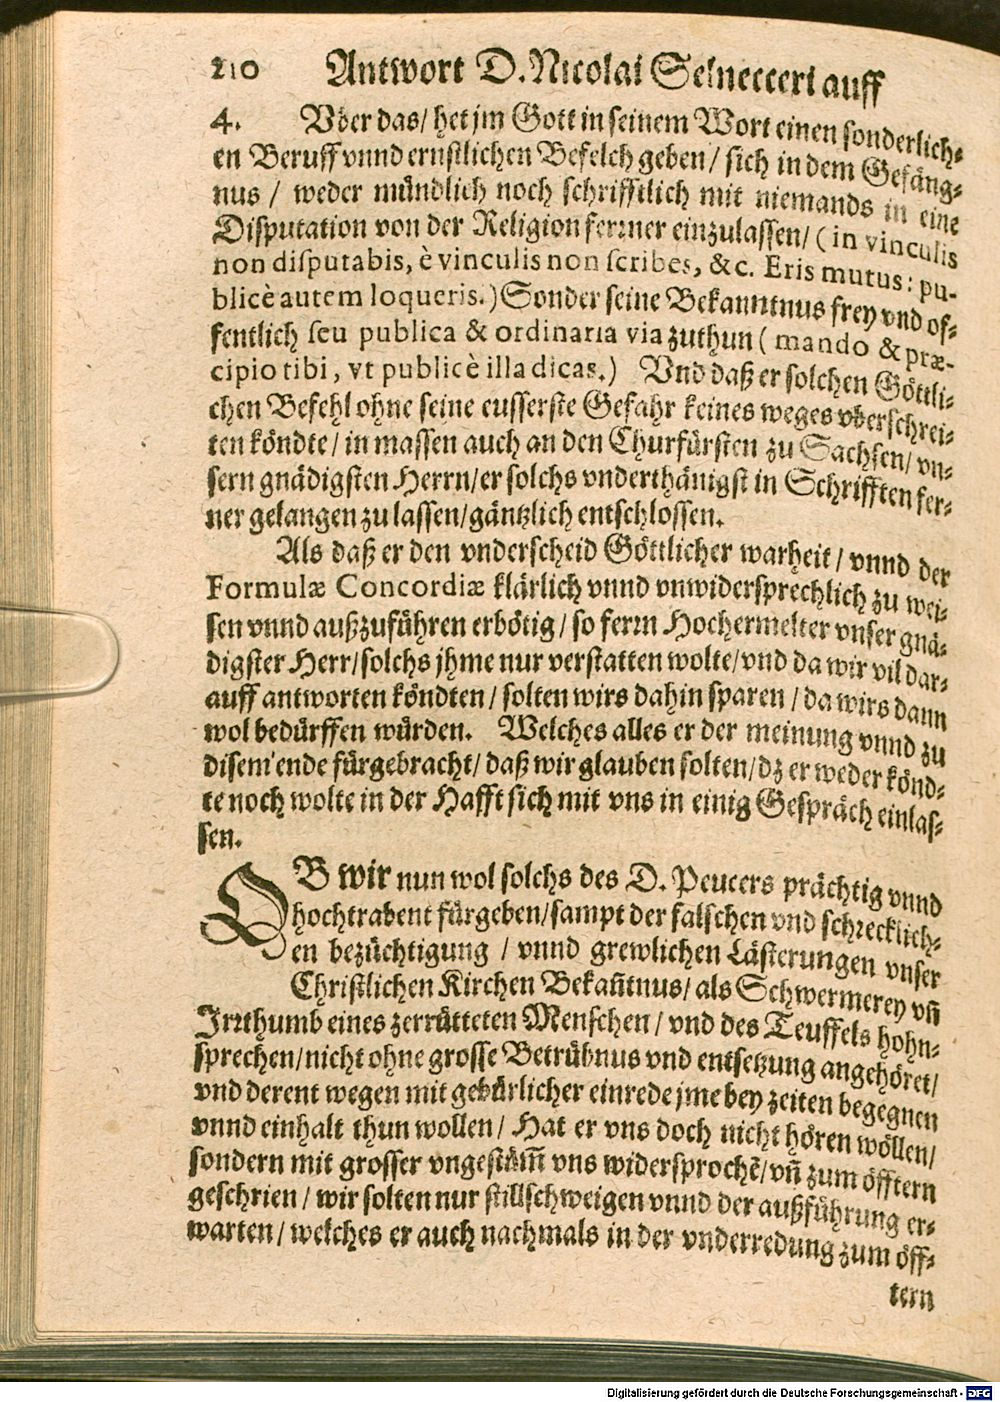 210 Antwort D. Nicolai Selnecceri auff
4. Vber das/ het jm Gott in seinem Wort einen sonderlich⸗
en Beruff vnnd ernstlichen Befelch geben/ sich in dem Gefäng⸗
nus / weder mündlich noch schrifftlich mit niemands in eine
Disputation von der Religion ferrner einzulassen/ (in vinculis
non disputabis, è vinculis non scribes, &c. Eris mutus: pu-
blicè autem loqueris.) Sonder seine Bekanntnus frey vnd of⸗
fentlich seu publica & ordinaria via zuthun ( mando & præ-
cipio tibi, vt publicè illa dicas.) Vnd daß er solchen Göttli⸗
chen Befehl ohne seine eusserste Gefahr keines weges vberschrei⸗
ten köndte/ in massen auch an den Churfürsten zu Sachsen/ vn⸗
sern gnädigsten Herrn/ er solchs vnderthänigst in Schrifften fer⸗
ner gelangen zu lassen/ gäntzlich entschlossen.
Als daß er den vnderscheid Göttlicher warheit / vnnd der
Formulæ Concordiæ klärlich vnnd vnwidersprechlich zu wei⸗
sen vnnd außzuführen erbötig / so ferrn Hochermelter vnser gnä⸗
digster Herr/ solchs jhme nur verstatten wolte/ vnd da wir vil dar⸗
auff antworten köndten / solten wirs dahin sparen / da wirs dann
wol bedürffen würden. Welches alles er der meinung vnnd zu
disem ende fürgebracht/ daß wir glauben solten/ dz er weder könd⸗
te noch wolte in der Hafft sich mit vns in einig Gespräch einlas⸗
sen.
OB wir nun wol solchs des D. Peucers prächtig vnnd
hochtrabent fürgeben/ sampt der falschen vnd schrecklich⸗
en bezüchtigung / vnnd grewlichen Lästerungen vnser
Christlichen Kirchen Bekañtnus/ als Schwermerey vñ
Irrthumb eines zerrütteten Menschen / vnd des Teuffels hohn⸗
sprechen/ nicht ohne grosse Betrübnus vnd entsetzung angehöret/
vnd derent wegen mit gebürlicher einrede jme bey zeiten begegnen
vnnd einhalt thun wollen / Hat er vns doch nicht hören wöllen/
sondern mit grosser vngestüm̃ vns widersprochẽ/ vñ zum öfftern
geschrien / wir solten nur stillschweigen vnnd der außführung er⸗
warten / welches er auch nachmals in der vnderredung zum öff⸗
tern
Digitalisierung gefördert durch die Deutsche Forschungsgemeinschaft - DFG